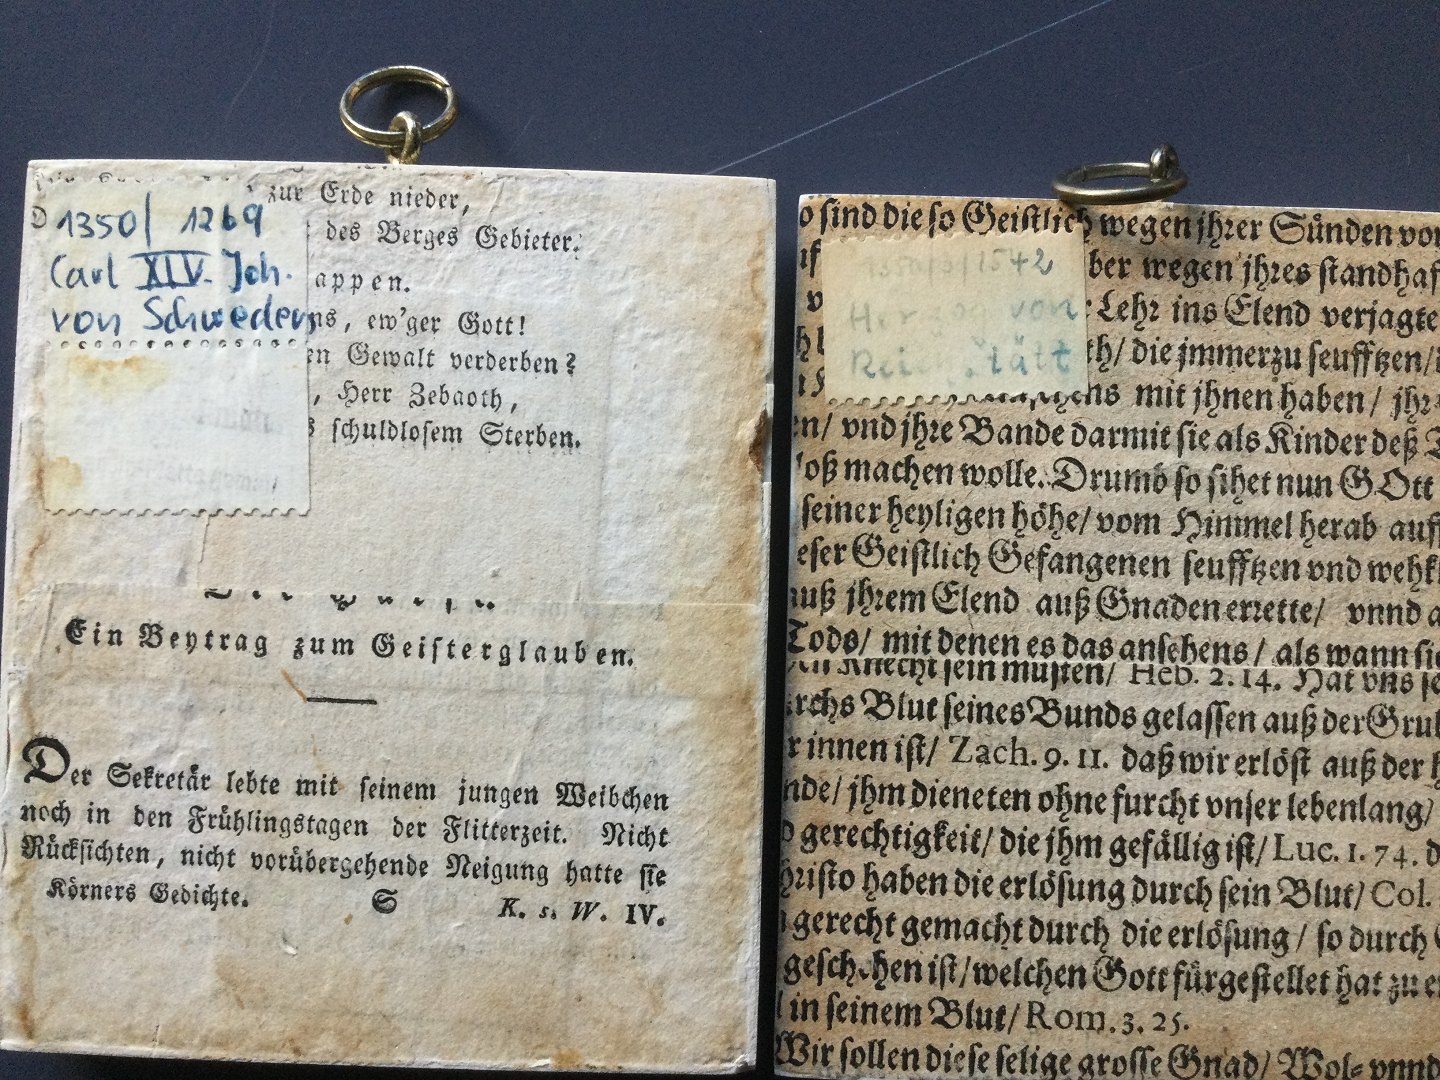 1350/ 1269
Carl XIV. Joh.
von Schweden
zur Erde nieder,
des Berges Gebieter.
appen.
ns, ew'ger Gott!
en Gewalt verderben?
, Herr Zebaoth,
s schuldlosem Sterben.
Ein Beytrag zum Geisterglauben.
Der Sekretär lebte mit seinem jungen Weibchen
noch in den Frühlingstagen der Flitterzeit. Nicht
Rücksichten, nicht vorübergehende Neigung hatte sie
Körners Gedichte. S K. s. W. IV.
1542
Herzog von
o sind die so Geistlich wegen jhrer Sünden von
ber wegen jhres standhaf
Lehr ins Elend verjagte
th/ die jmmerzu seufftzen/
mit jhnen haben/ jhr
en/ vnd jhre Bande darmit sie als Kinder deß T
loß machen wolle. Drumb so sihet nun GOtt
seiner heyligen höhe/ vom Himmel herab auff
eser Geistlich Gefangenen seufftzen vnd wehkl
auß jhrem Elend auß Gnaden errette/ vnnd a
Tods/ mit denen es das ansehens/ als wann sie
Knecht sein musten/ Heb. 2. 14. Hat vns se
rchs Blut seines Bunds gelassen auß der Grub
r innen ist/ Zach. 9. 11. daß wir erlöst auß der h
nde/ jhm dieneten ohne furcht vnser lebenlang/
d gerechtigkeit/ die jhm gefällig ist/ Luc. 1. 74. d
hristo haben die erlösung durch sein Blut/ Col.
gerecht gemacht durch die erlösung / so durch C
geschehen ist/ welchen Gott fürgestellet hat zu e
in seinem Blut/ Rom. 3. 25.
Wir sollen diese selige grosse Gnad/ Wol= vnnd